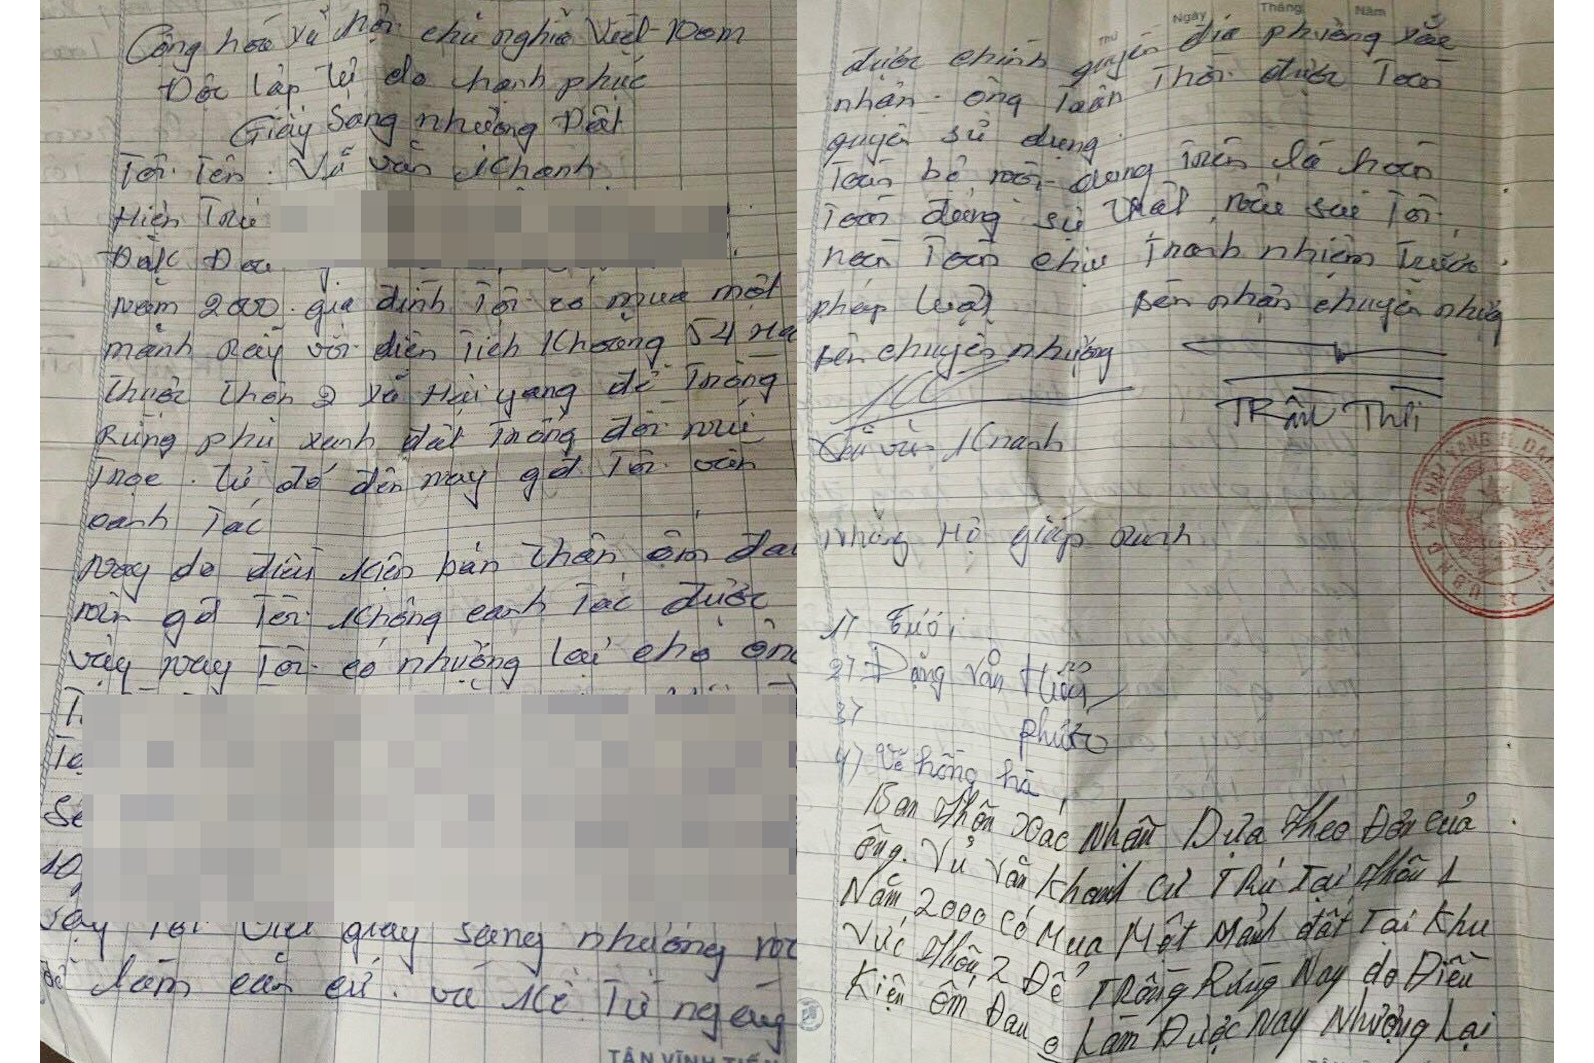 Cộng hoà xã hội chủ nghĩa Việt Nam
Độc lập Tự do hạnh phúc
Giấy Sang nhường Đất
Tôi Tên : Vũ văn Khanh
Hiện Trú
Đắk Đoa
Năm 2000. gia đình Tôi có mua một
mảnh Rẫy với diện Tích Khoảng 54 Ha
Thuộc Thôn 2 xã Hải yang để Trồng
Rừng phủ xanh đất Trống đồi núi
Trọc . từ đó đến nay gđ Tôi vẫn
canh Tác
Nay do điều kiện bản Thân ốm đau
nên gđ Tôi không canh Tác được
vậy nay Tôi có nhượng lại cho ông
10
vậy Tôi viết giấy sang nhượng này
để làm căn cứ. và kể Từ ngày
TÂN VĨNH TIẾN
Ngày Tháng Năm
Thứ
được chính quyền địa phương xác
nhận. ông Tuấn Thôi được Toàn
quyền sử dụng.
Toàn bộ nội dung Trên là hoàn
Toàn đúng sự Thật nếu sai Tôi
hoàn Toàn chịu Tranh nhiệm Trước
pháp luật
Bên nhận chuyển nhượng
Bên chuyển nhượng
TRẦN Thới
Vũ văn Khanh
XÃ HẢI YANG H. ĐAK
U.B.N.D
Những Hộ giáp ranh
1)
2) Đặng Văn Hiền
3) phước
4) Võ hồng hà
Ban Thôn Xác Nhận Dựa Theo Đơn của
ông. Vũ Văn Khanh Cư TRú Tại Thôn 1
Năm 2000 Có Mua Một Mảnh đất Tại Khu
Vực Thôn 2 Để TRồng Rừng Nay do Điều
Kiện ốm Đau Làm Được Nay Nhượng Lại